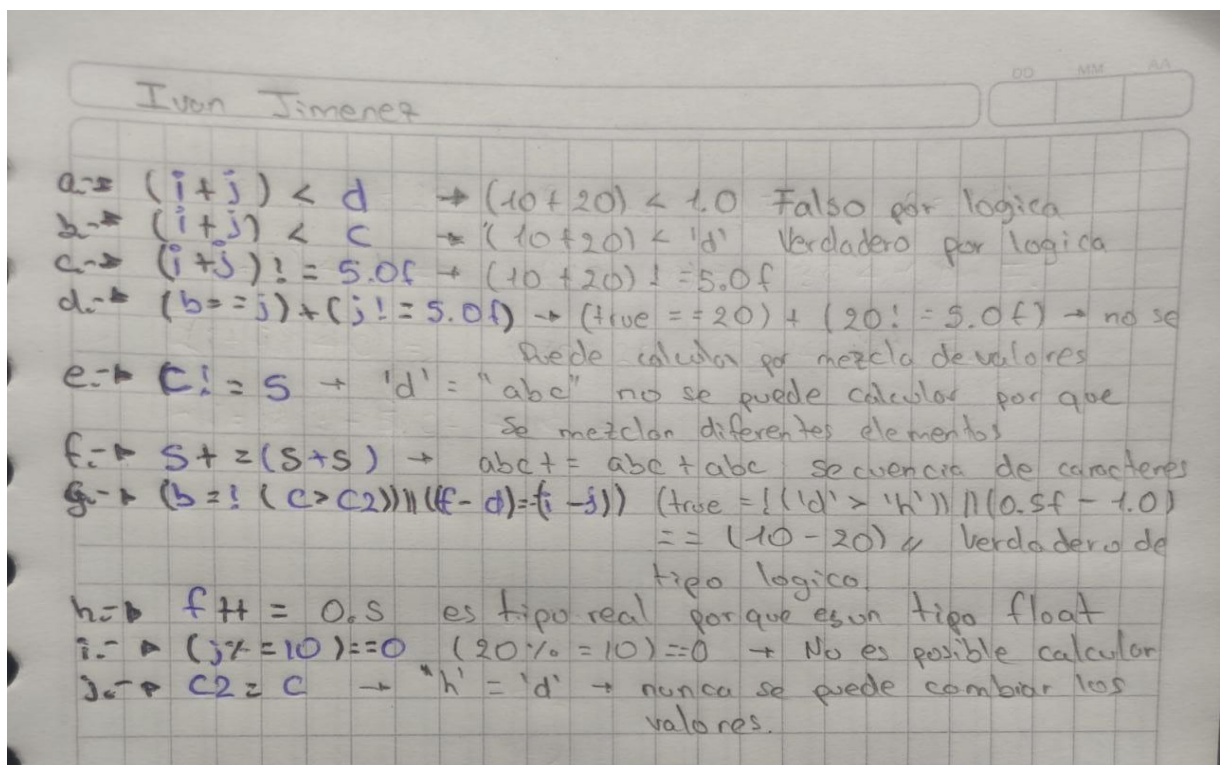 DD MM AA
Ivan Jimenez
a.-> (i+j) < d -> (10+20) < 1.0 Falso por logica
b.-> (i+j) < c -> (10+20) < 'd' Verdadero por logica
c.-> (i+j)!= 5.0f -> (10+20)!=5.0f
d.-> (b==j)+(j!=5.0f) -> (true ==20)+(20!=5.0f) -> no se
Puede calcular por mezcla de valores
e.-> C!=S -> 'd'="abc" no se puede calcular por que
Se mezclan diferentes elementos
f.-> S+=(S+S) -> abc+= abc+abc secuencia de caracteres
g.-> (b=!(C>C2))||((f-d)=(i-j)) (true=!('d'>'h'))||(0.5f-1.0)
==(10-20) // Verdadero de
tipo logico
h.-> f++ = 0.5 es tipo real porque es un tipo float
i.-> (j%=10)==0 (20%=10)==0 -> No es posible calcular
j.-> C2=C -> 'h'='d' -> nunca se puede cambiar los
valores.